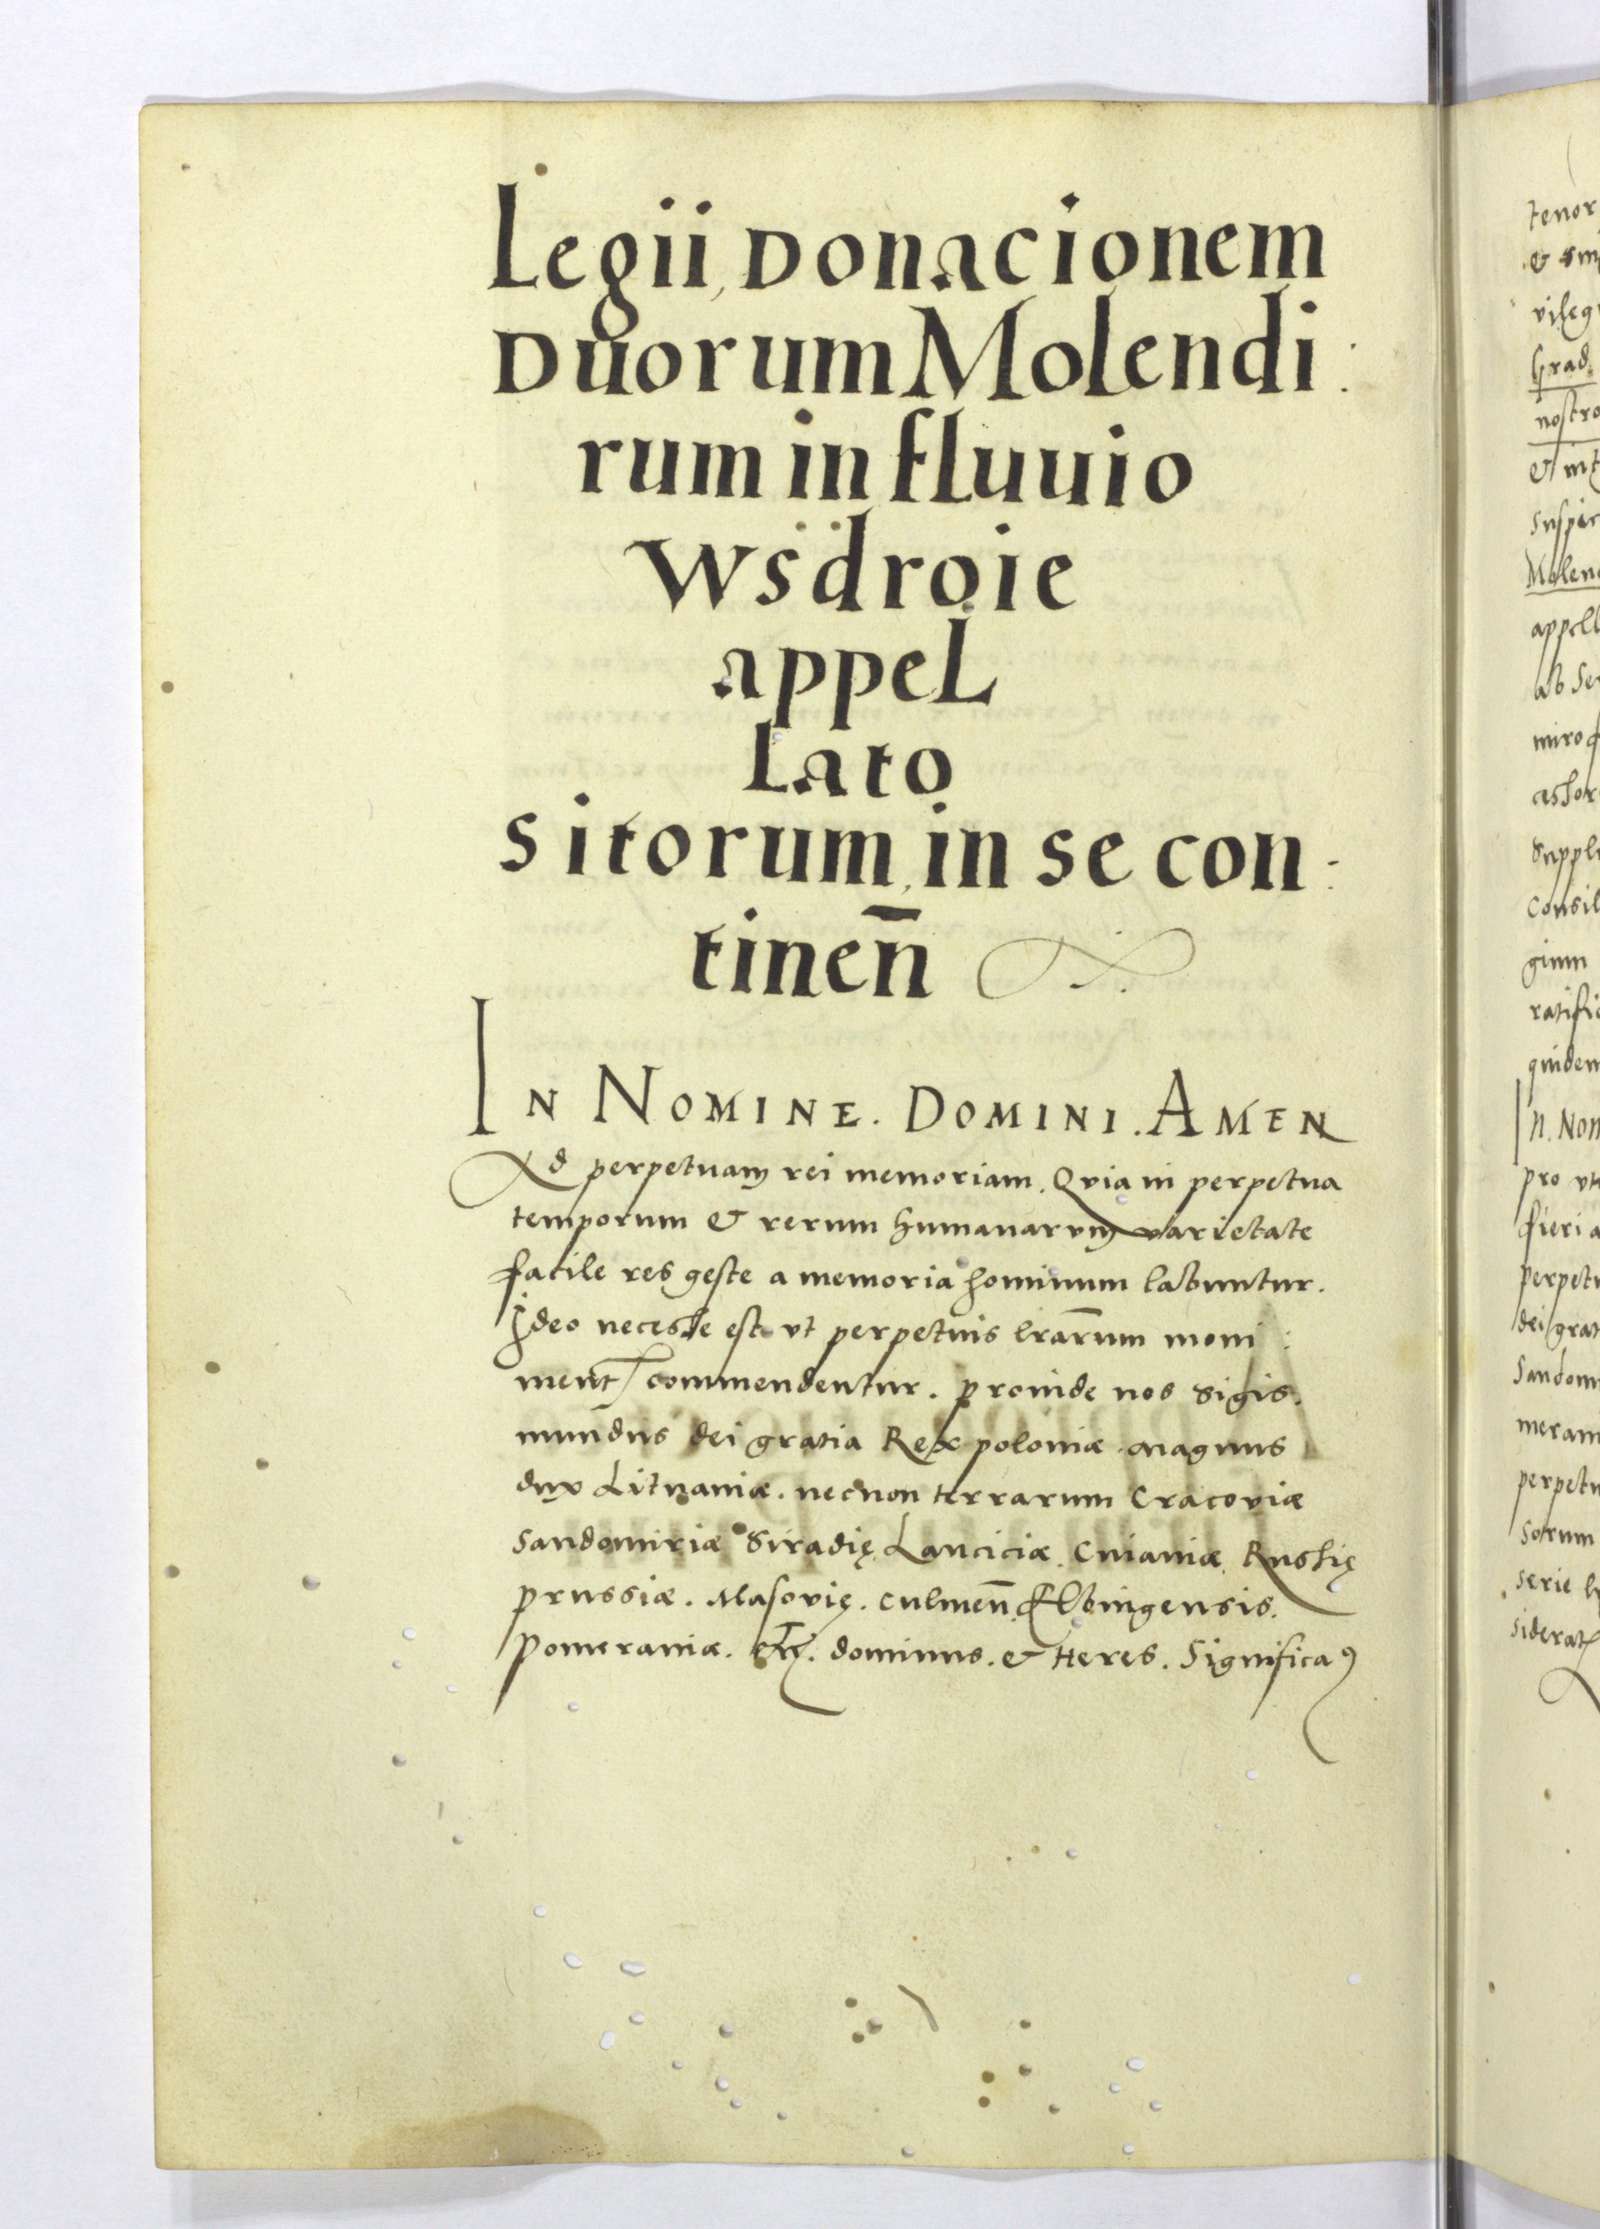 Legii, Donacionem
Duorum Molendi:
rum in fluuio
Wsdroie
appel
lato
sitorum, in se con:
tinen̄
In Nomine. Domini. Amen
Ad perpetuam rei memoriam. Quia in perpetua
temporum & rerum humanarum varietate
facile res geste a memoria hominum labuntur.
Ideo necesse est vt perpetuis lrārum moni:
ment commendentur. proinde nos Sigis.
mundus dei gratia Rex poloniæ. Magnus
dux Lituaniæ. necnon terrarum Cracoviæ
Sandomiriæ Siradię Lanciciæ. Cuiaviæ. Russię
prussiæ. Masovię. Culmen̄. Elbingensis.
Pomeraniæ. etc. dominus. & Heres. Significaꝰ
tenor
& sin
vileg
Grad.
nostro
& int
suspic
Molen
appell
ab Se
miro
cessor
suppli
Consil
gium
ratific
quidem
In. Nom
pro vt
fieri a
perpetu
dei grat
Sandom
meram
perpetu
sorum
serie l
siderat